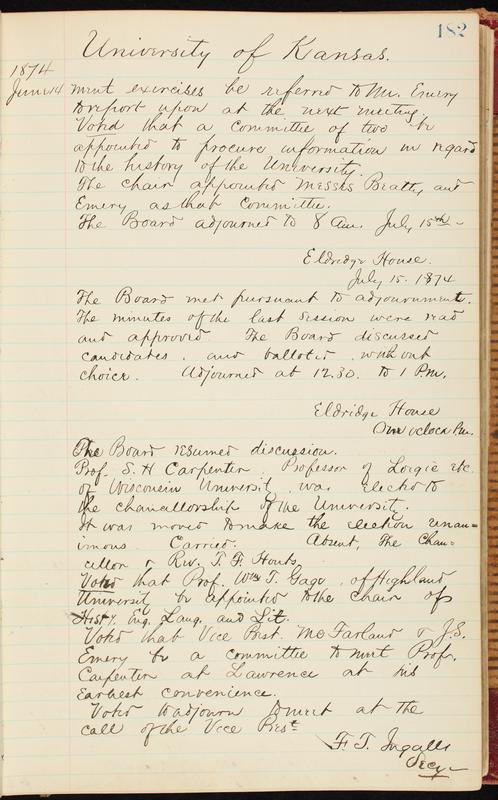 182
University of Kansas.
1874
June 14 ment exercises be referred to Mr. Emery
to report upon at the next meeting.
Voted that a committee of two be
appointed to procure information in regard
to the history of the University.
The chair appointed Messrs Beatty, and
Emery as that Committee.
The Board adjourned to 8 Am. July 15th
Eldridge House.
July 15. 1874
The Board met pursuant to adjournment.
The minutes of the last session were read
and approved. The Board discussed
candidates, and balloted, without
choice. Adjourned at 12.30. to 1 P.m.
Eldridge House
One oclock Pm.
The Board resumed discussion.
Prof. S. H Carpenter, Professor of Logic etc.
of Wisconsin University was elected to
the chancellorship of the University.
It was moved to make the election unan=
imous. Carried. Absent, The Chan=
cellor & Rev. T. F. Houts.
Voted that Prof. Wm T. Gage, of Highland
University be appointed to the chair of
Hist'y. Eng. Lang. and Lit.
Voted that Vice Prest. McFarland & J.S.
Emery be a committee to meet Prof.
Carpenter at Lawrence at his
earliest convenience.
Voted to adjourn to meet at the
call of the Vice Prest
F. T. Ingalls
Secy